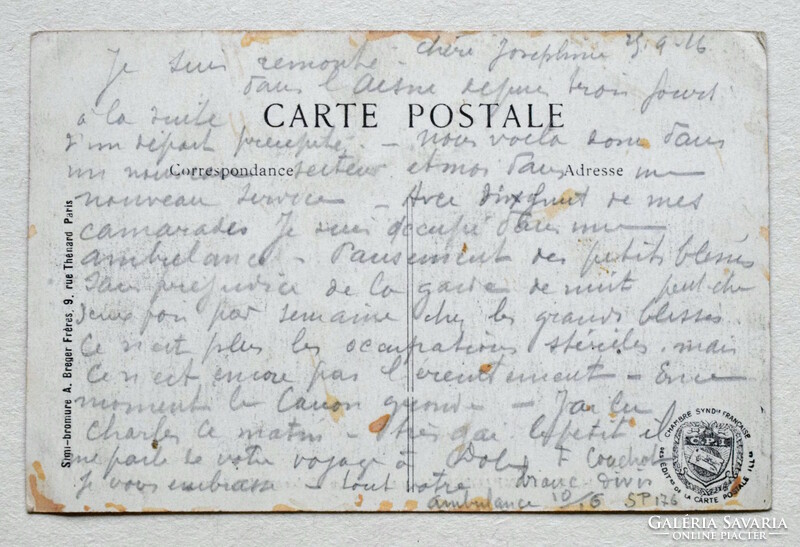 Chère Josephine 25.9.16
Je suis remonté
dans l'Aisne depuis trois jours
à la suite
CARTE POSTALE
d'un départ précipité. - Nous voila donc dans
Correspondance
Adresse
un nouveau secteur et moi dans un
nouveau service - Avec de mes
camarades je suis occupé dans une
ambulance - Pansement des petits blessés
sans préjudice de la garde de nuit
deux fois par semaine chez les grands blessés.
Ce n'est plus les occupations stériles mais
ce n'est encore pas l' - En ce
moment le canon gronde - J'ai lu
Charles ce matin - il
me parle de votre voyage à Dole
je vous embrasse - tout votre
ambulance 10/16 SP 176
Simi-bromure A. Breger Frères, 9, rue Thénard Paris
CHAMBRE SYND.le FRANÇAISE
DE LA CARTE POSTALE ILL.ée
GALÉRIA SAVARIA
ONLINE PIACTÉR